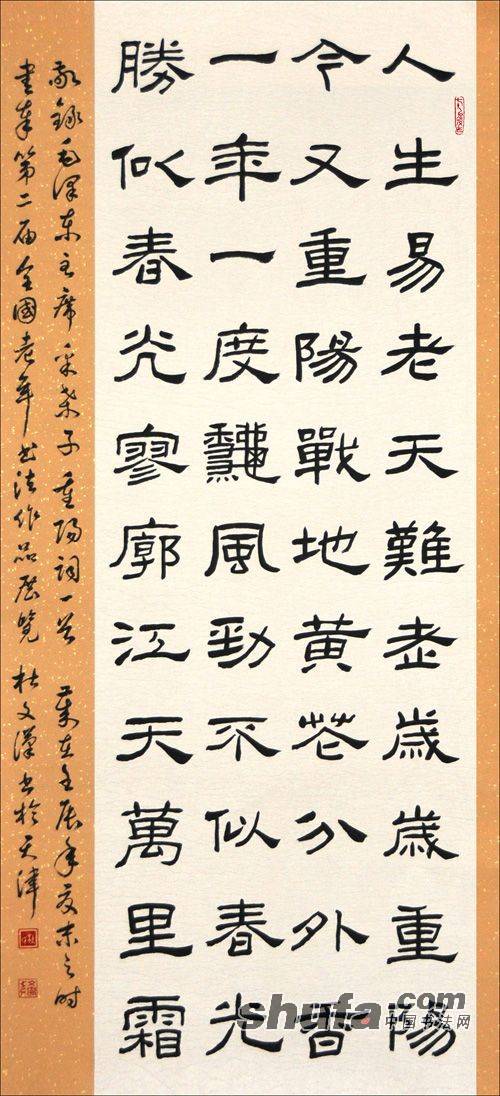 人生易老天難老歲歲重陽
今又重陽戰地黃花分外香
一年一度龝風勁不似春光
勝似春光寥廓江天萬里霜
敬錄毛澤东主席采桑子重陽词一首 歲在壬辰年夏末之时
書奉第二届全國老年书法作品展覽 杜文漢书於天津
shufa.com
中国书法网